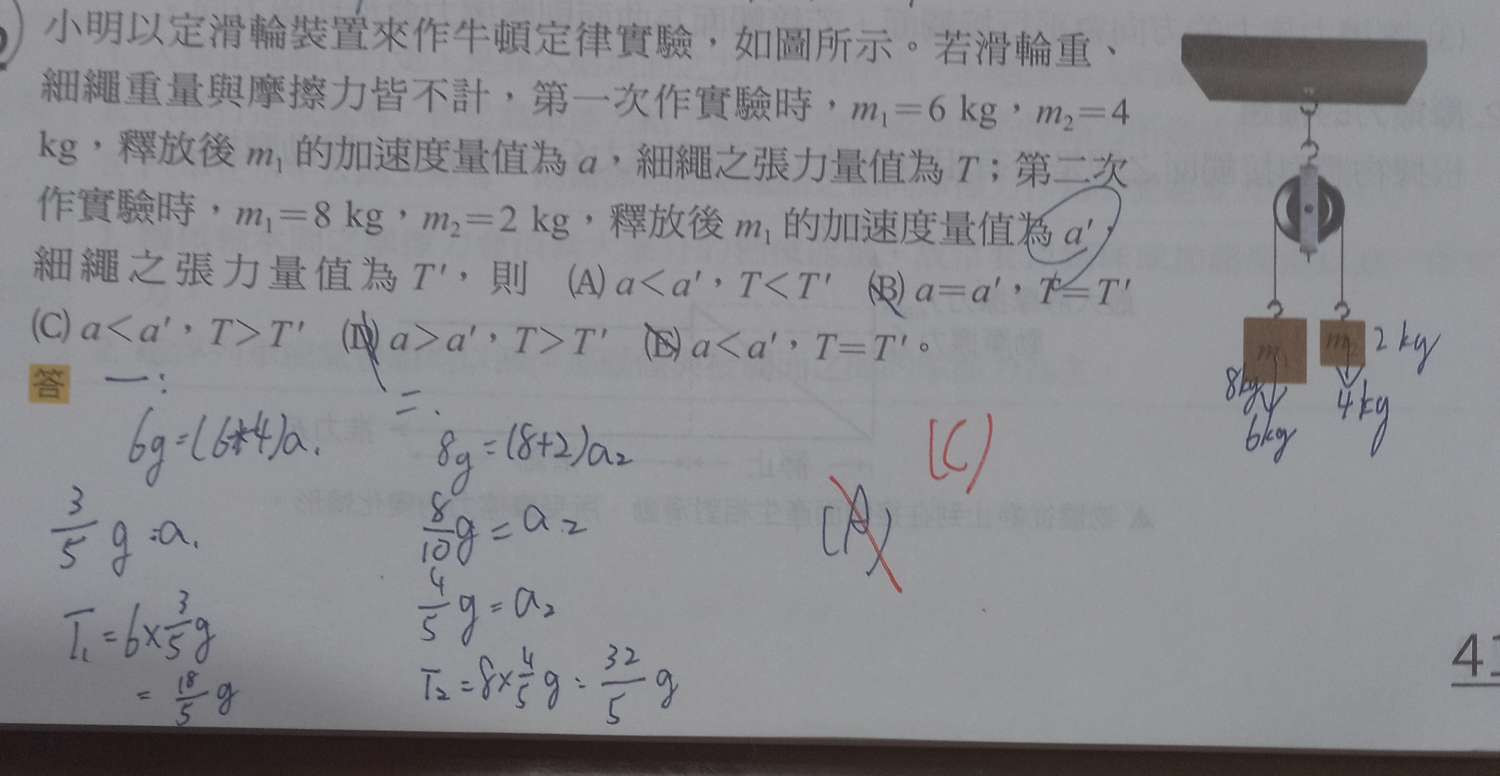 小明以定滑輪裝置來作牛頓定律實驗，如圖所示。若滑輪重、
細繩重量與摩擦力皆不計，第一次作實驗時，m₁=6 kg，m₂=4
kg，釋放後 m₁ 的加速度量值為 a，細繩之張力量值為 T；第二次
作實驗時，m₁=8 kg，m₂=2 kg，釋放後 m₁ 的加速度量值為 a′，
細繩之張力量值為 T′，則 (A) a<a′，T<T′ (B) a=a′，T=T′
(C) a<a′，T>T′ (D) a>a′，T>T′ (E) a<a′，T=T′。
m₁ m₂ 2kg
8kg 4kg
6kg
答 一:
6g=(6+4)a₁
3/5 g=a₁
T₁=6×3/5g
=18/5 g
二.
8g=(8+2)a₂
8/10g=a₂
4/5 g=a₂
T₂=8×4/5g=32/5 g
(A)
(C)
41